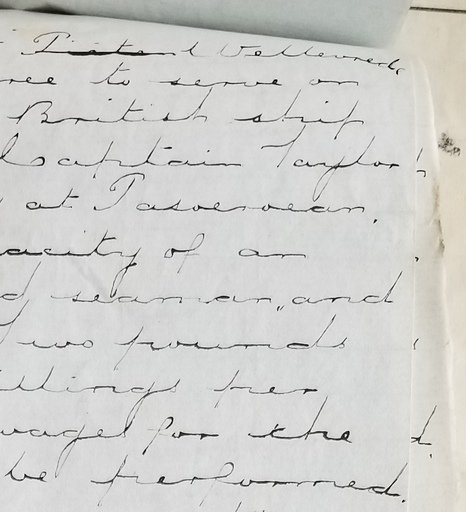 ree to serve on
British ship
Captain Taylor
at Pasoeroean,
acity of an
d seaman, and
Two pounds
illings per
wages for the
be performed.